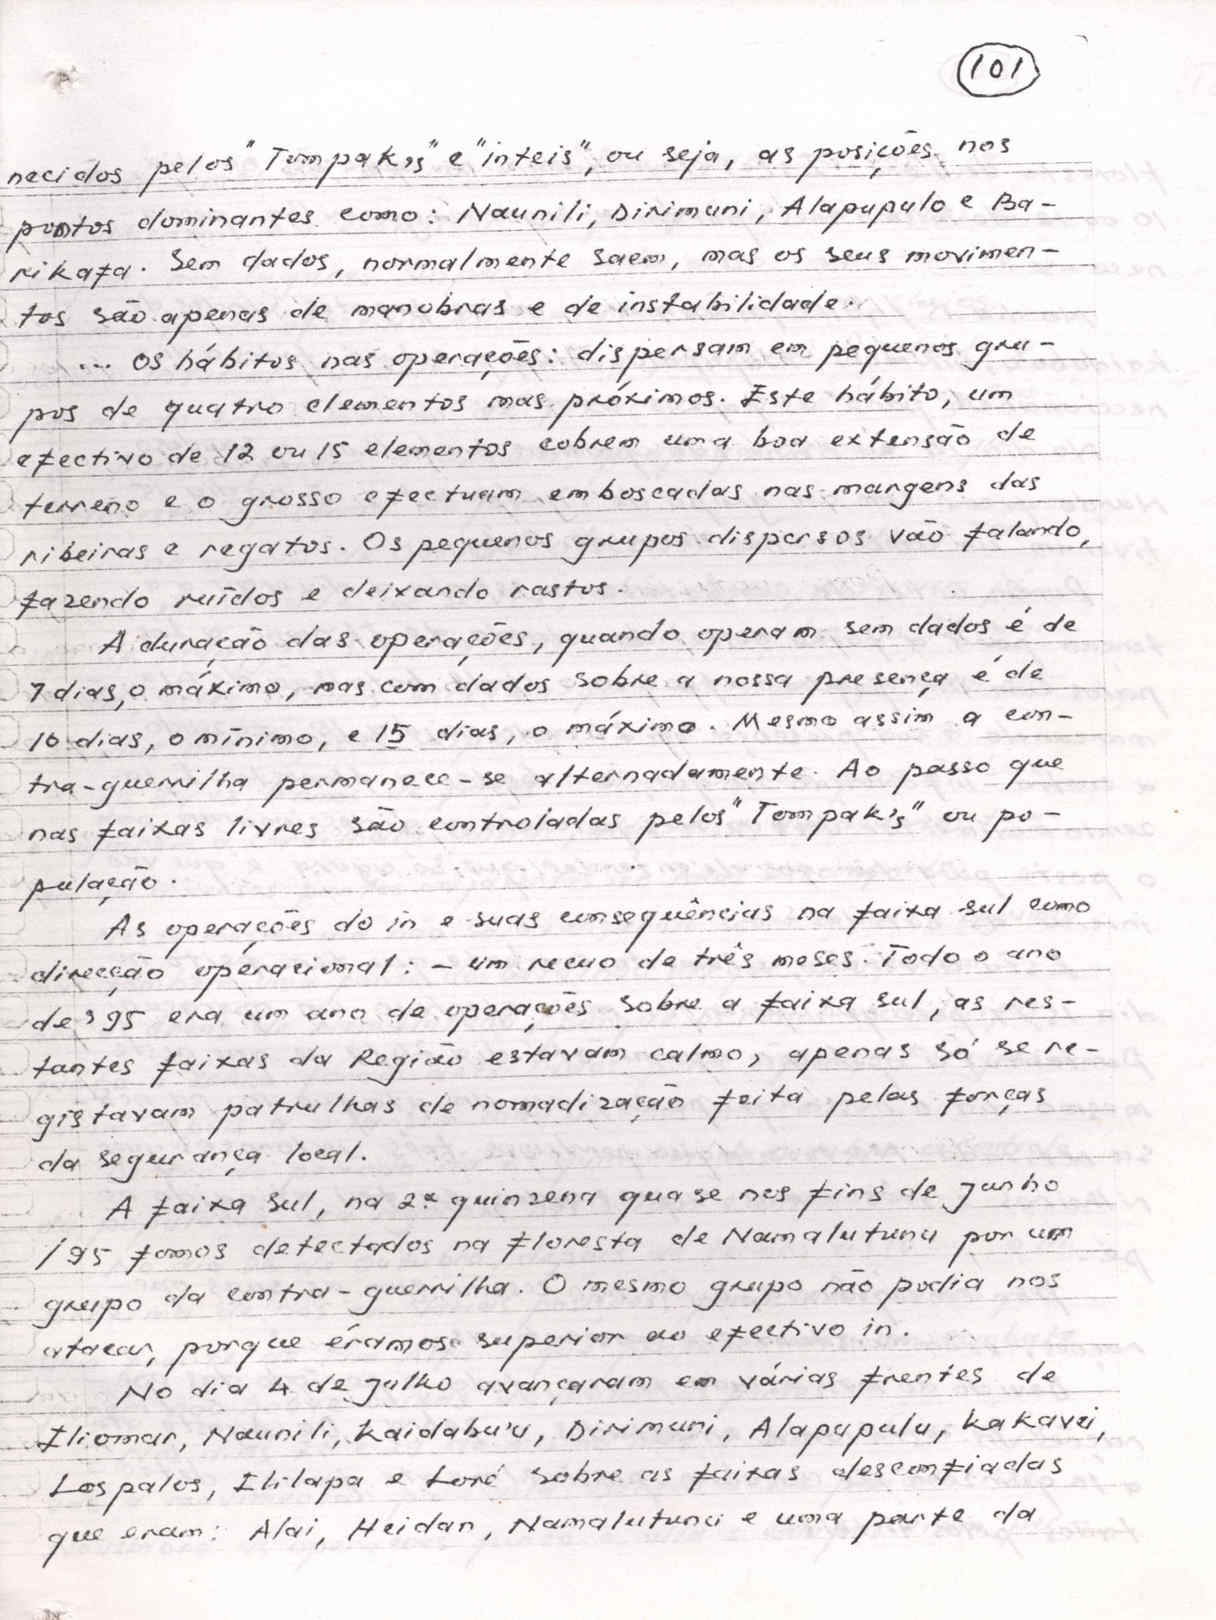 101
necidos pelos "Tompak's" e "inteis", ou seja, as posições nos
pontos dominantes como: Naunili, Dirimuni, Alapupulo e Ba-
rikafa. Sem dados, normalmente saem, mas os seus movimen-
tos são apenas de manobras e de instabilidade.
... Os hábitos nas operações: dispersam em pequenos gru-
pos de quatro elementos mas próximos. Este hábito, um
efectivo de 12 ou 15 elementos cobrem uma boa extensão de
terreno e o grosso efectuam emboscadas nas margens das
ribeiras e regatos. Os pequenos grupos dispersos vão falando,
fazendo ruídos e deixando rastos.
A duração das operações, quando operam sem dados é de
7 dias, o máximo, mas com dados sobre a nossa presença é de
10 dias, o mínimo, e 15 dias, o máximo. Mesmo assim a con-
tra-guerrilha permanece-se alternadamente. Ao passo que
nas faixas livres são controladas pelos "Tompak's" ou po-
pulação.
As operações do in e suas consequências na faixa sul como
direcção operacional: - um recuo de três meses. Todo o ano
de '95 era um ano de operações sobre a faixa sul, as res-
tantes faixas da Região estavam calmo, apenas só se re-
gistavam patrulhas de nomadização feita pelas forças
da segurança local.
A faixa sul, na 2ª quinzena quase nos fins de Junho
/95 fomos detectados na floresta de Namalutunu por um
grupo da contra-guerrilha. O mesmo grupo não podia nos
atacar, porque éramos superior ao efectivo in.
No dia 4 de Julho avançaram em várias frentes de
Iliomar, Naunili, Kaidabu'u, Dirimuni, Alapupulu, Kakavei,
Lospalos, Ililapa e Loré sobre as faixas desconfiadas
que eram: Alai, Heidan, Namalutunu e uma parte da